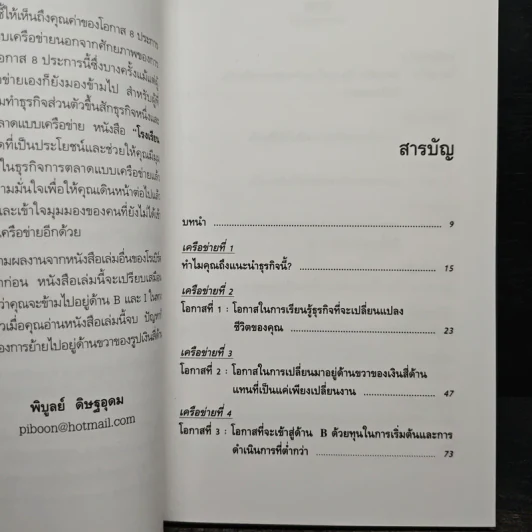 ชี้ให้เห็นถึงคุณค่าของโอกาส 8 ประการ
แบบเครือข่ายนอกจากศักยภาพของการ
โอกาส 8 ประการนี้ซึ่งบางครั้งแม้แต่ผู้
ข่ายเองก็ยังมองข้ามไป สำหรับผู้ที่
มทำธุรกิจส่วนตัวขึ้นสักธุรกิจหนึ่งและ
ลาดแบบเครือข่าย หนังสือ "โรงเรียน
ดที่เป็นประโยชน์และช่วยให้คุณมีมุม
ในธุรกิจการตลาดแบบเครือข่ายแล้ว
ามมั่นใจเพื่อให้คุณเดินหน้าต่อไปแล้ว
และเข้าใจมุมมองของคนที่ยังไม่ได้เข้า
เครือข่ายอีกด้วย
ามผลงานจากหนังสือเล่มอื่นของโรเบิร์ต
าก่อน หนังสือเล่มนี้จะเปรียบเสมือน
ว่าคุณจะข้ามไปอยู่ด้าน B และ I ในทาง
วเมื่อคุณอ่านหนังสือเล่มนี้จบ ปัญหา
องการย้ายไปอยู่ด้านขวาของรูปเงินสี่ด้าน
พิบูลย์ ดิษฐอุดม
piboon@hotmail.com
สารบัญ
บทนำ 9
เครือข่ายที่ 1
ทำไมคุณถึงแนะนำธุรกิจนี้? 15
เครือข่ายที่ 2
โอกาสที่ 1 : โอกาสในการเรียนรู้ธุรกิจที่จะเปลี่ยนแปลง
ชีวิตของคุณ 23
เครือข่ายที่ 3
โอกาสที่ 2 : โอกาสในการเปลี่ยนมาอยู่ด้านขวาของเงินสี่ด้าน
แทนที่เป็นแค่เพียงเปลี่ยนงาน 47
เครือข่ายที่ 4
โอกาสที่ 3 : โอกาสที่จะเข้าสู่ด้าน B ด้วยทุนในการเริ่มต้นและการ
ดำเนินการที่ต่ำกว่า 73